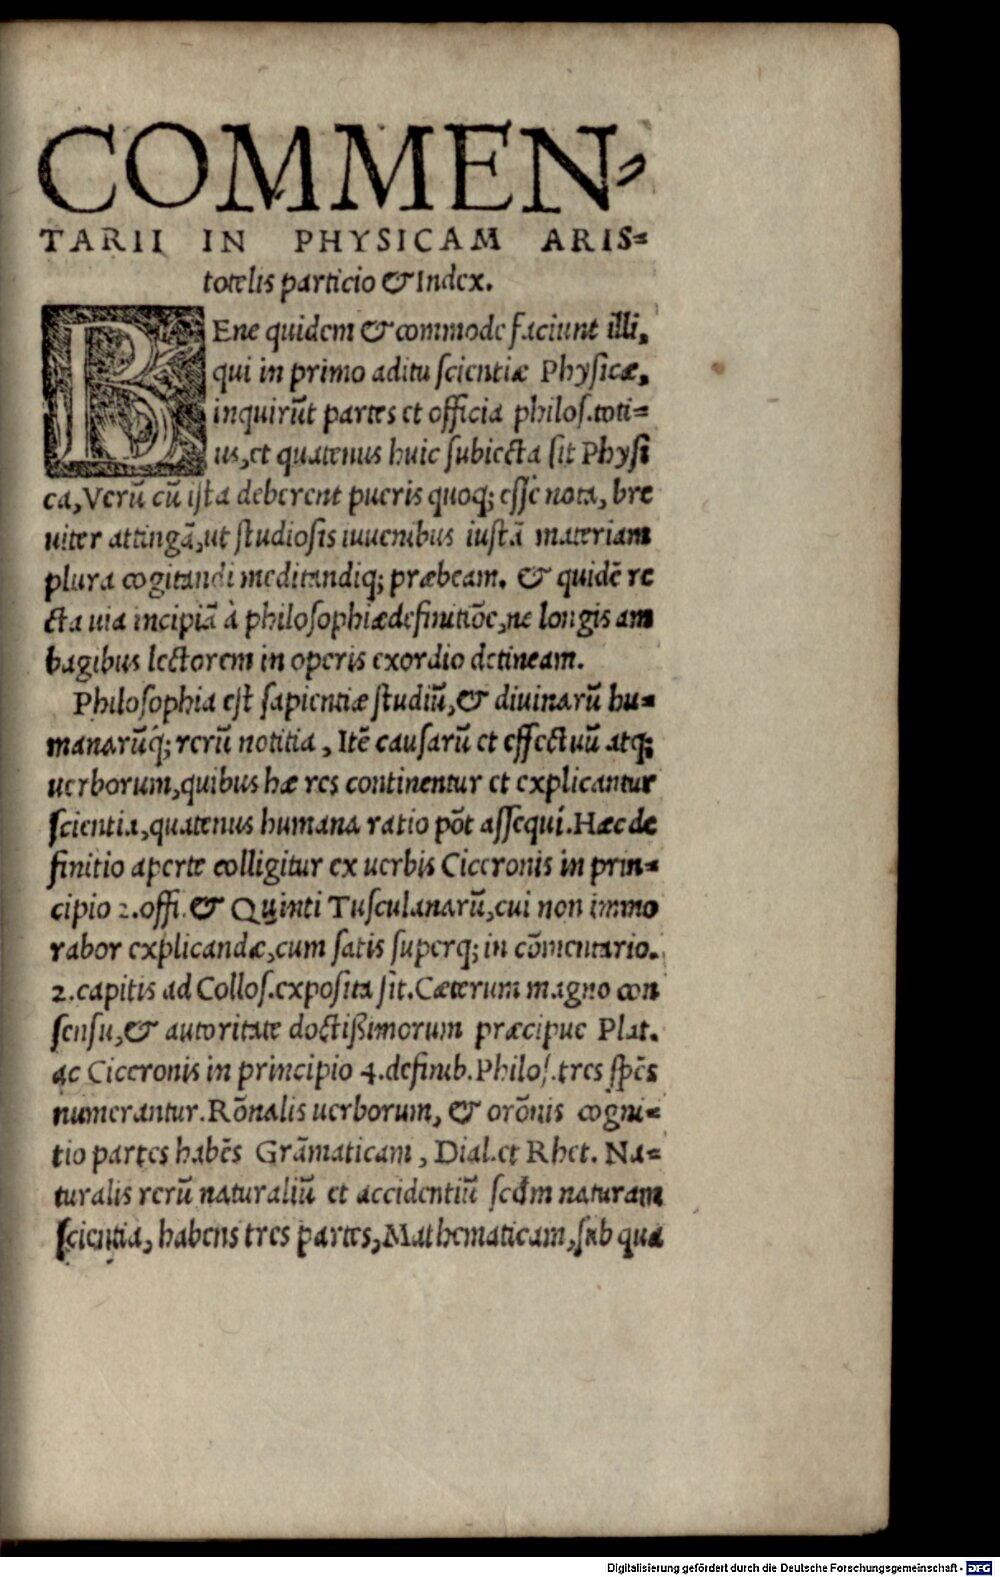 COMMEN-
TARII IN PHYSICAM ARIS-
totelis particio & Index.
BEne quidem & commode faciunt illi,
qui in primo aditu scientiæ Physicæ,
inquirūt partes et officia philos. toti-
us, et quatenus huic subiecta sit Physi
ca, Verū cū ista deberent pueris quoq; esse nota, bre
uiter attingā, ut studiosis iuuenibus iustā materiam
plura cogitandi meditandiq; præbeam. & quidē re
cta uia incipiā à philosophiæ definitiōe, ne longis am
bagibus lectorem in operis exordio detineam.
Philosophia est sapientiæ studiū, & diuinarū hu-
manarūq́; rerū notitia, Itē causarū et effectuū atq;
uerborum, quibus hæ res continentur et explicantur
scientia, quatenus humana ratio pōt assequi. Hæc de
finitio aperte colligitur ex uerbis Ciceronis in prin-
cipio 2. offi. & Quinti Tusculanarū, cui non immo
rabor explicandæ, cum satis superq; in cōmentario.
2. capitis ad Collos. exposita sit. Cæterum magno con
sensu, & autoritate doctißimorum præcipue Plat.
ac Ciceronis in principio 4. definib. Philos. tres spēs
numerantur. Rōnalis uerborum, & orōnis cogni-
tio partes habēs Grāmaticam, Dial. et Rhet. Na-
turalis rerū naturaliū et accidentiū secdm naturam
scientia, habens tres partes, Mathematicam, sub qua
Digitalisierung gefördert durch die Deutsche Forschungsgemeinschaft - DFG